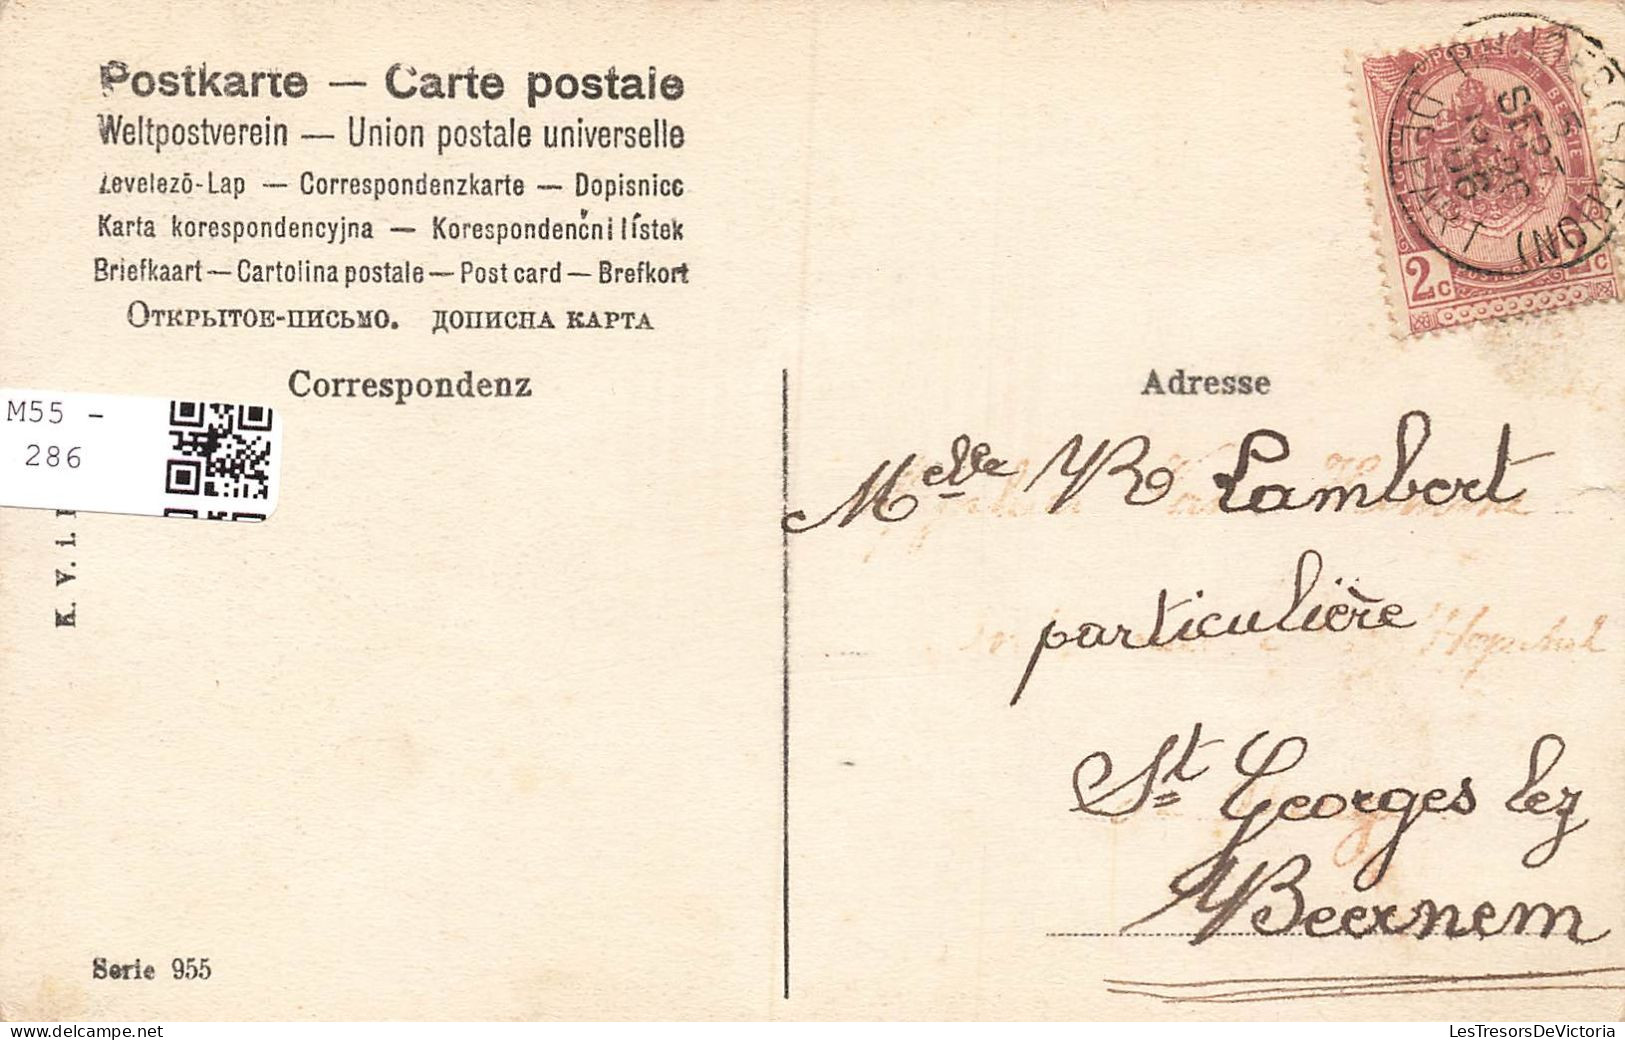 Postkarte — Carte postale
Weltpostverein — Union postale universelle
Levelező-Lap — Correspondenzkarte — Dopisnicc
Karta korespondencyjna — Korespondenčni lístek
Briefkaart — Cartolina postale — Post card — Brefkort
Открытое-письмо. дописна карта
Correspondenz
Adresse
M55 -
286
K. V. i.
POSTES
2c
Melle R Lambert
particulière
St Georges lez
Beernem
Serie 955
LesTresorsDeVictoria